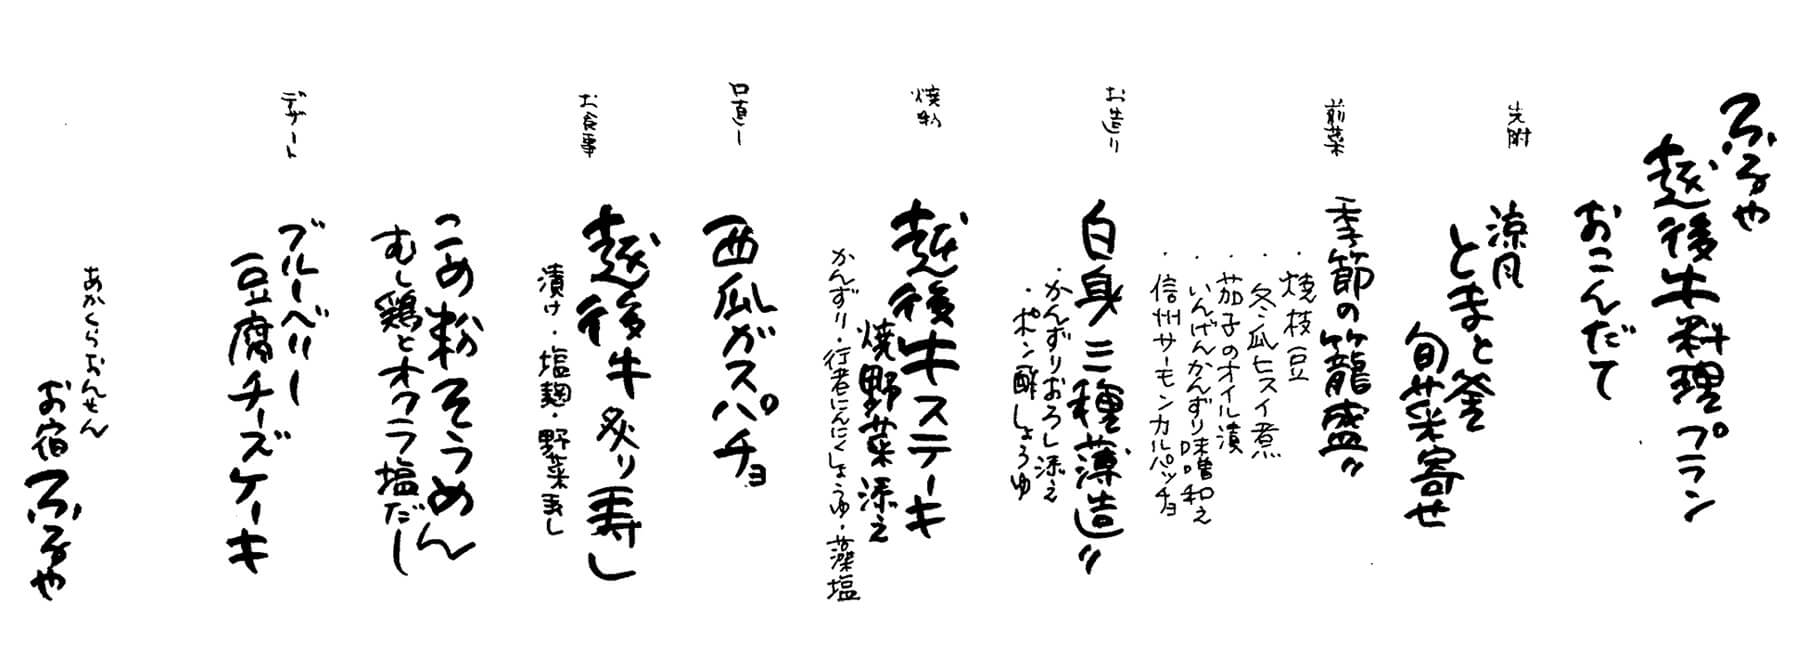 ふるや
越後牛料理プラン
おこんだて
先附
涼風
とまと釜
旬菜寄せ
前菜
季節の籠盛り
・焼枝豆
・冬瓜ヒスイ煮
・茄子のオイル漬
・いんげんかんずり味噌和え
・信州サーモンカルパッチョ
お造り
白身三種薄造り
・かんずりおろし添え
・ポン酢しょうゆ
焼物
越後牛ステーキ
焼野菜添え
かんずり・行者にんにくしょうゆ・藻塩
口直し
西瓜ガスパチョ
お食事
越後牛炙り寿し
漬け・塩麹・野菜寿し
こめ粉そうめん
むし鶏とオクラ塩だし
デザート
ブルーベリー
豆腐チーズケーキ
あかくらおんせん
お宿ふるや